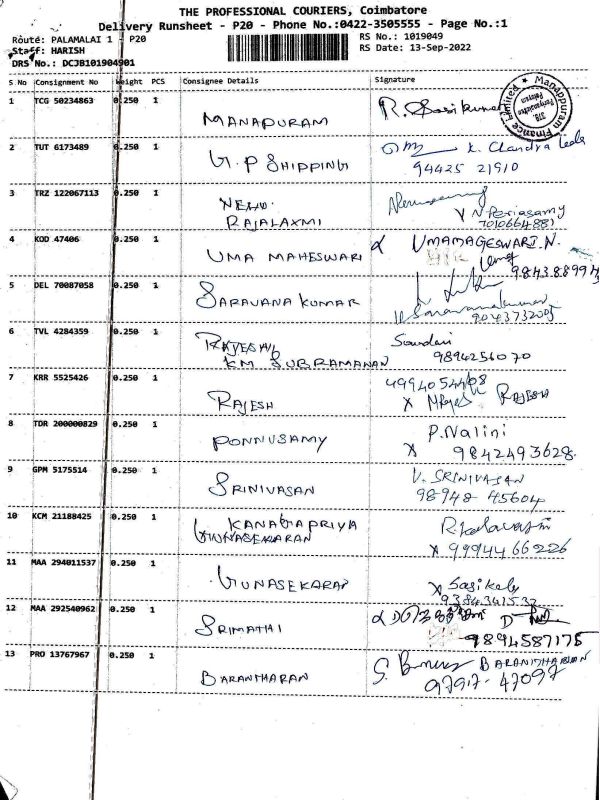 THE PROFESSIONAL COURIERS, Coimbatore
Delivery Runsheet - P20 - Phone No.:0422-3505555 - Page No.:1
Route: PALAMALAI 1 - P20
RS No.: 1019049
Staff: HARISH
RS Date: 13-Sep-2022
DRS No.: DCJB101904901
S.No Consignment No Weight PCS Consignee Details Signature
1 TCG 50234863 0.250 1 MANAPURAM R. Sasikumar
Manappuram Finance Limited
2 TUT 6173489 0.250 1 G.P SHIPPING K. Chandra
94425 21910
3 TRZ 122067113 0.250 1 NEHU RAJALAXMI N Periasamy
7010664881
4 KOD 47406 0.250 1 UMA MAHESWARI UMAMAGESWARI.N.
5 DEL 70087058 0.250 1 SARAVANA KUMAR Saravanakumar
9043732005
6 TVL 4284359 0.250 1 RAJESH/ KM SUBRAMANAN Soundari
9894256070
7 KRR 5525426 0.250 1 RAJESH X RAJESH
8 TDR 200000829 0.250 1 PONNUSAMY P. Nalini
X 9842493628
9 GPM 5175514 0.250 1 SRINIVASAN V. SRINIVASAN
98948 45604
10 KCM 21188425 0.250 1 KANAGAPRIYA GUNASEKARAN
X 99944 66226
11 MAA 294011537 0.250 1 GUNASEKARAN X Sasikala
12 MAA 292540962 0.250 1 SRIMATHI
9894587175
13 PRO 13767967 0.250 1 BARANTHARAN BARANITHARAN
97917-47097